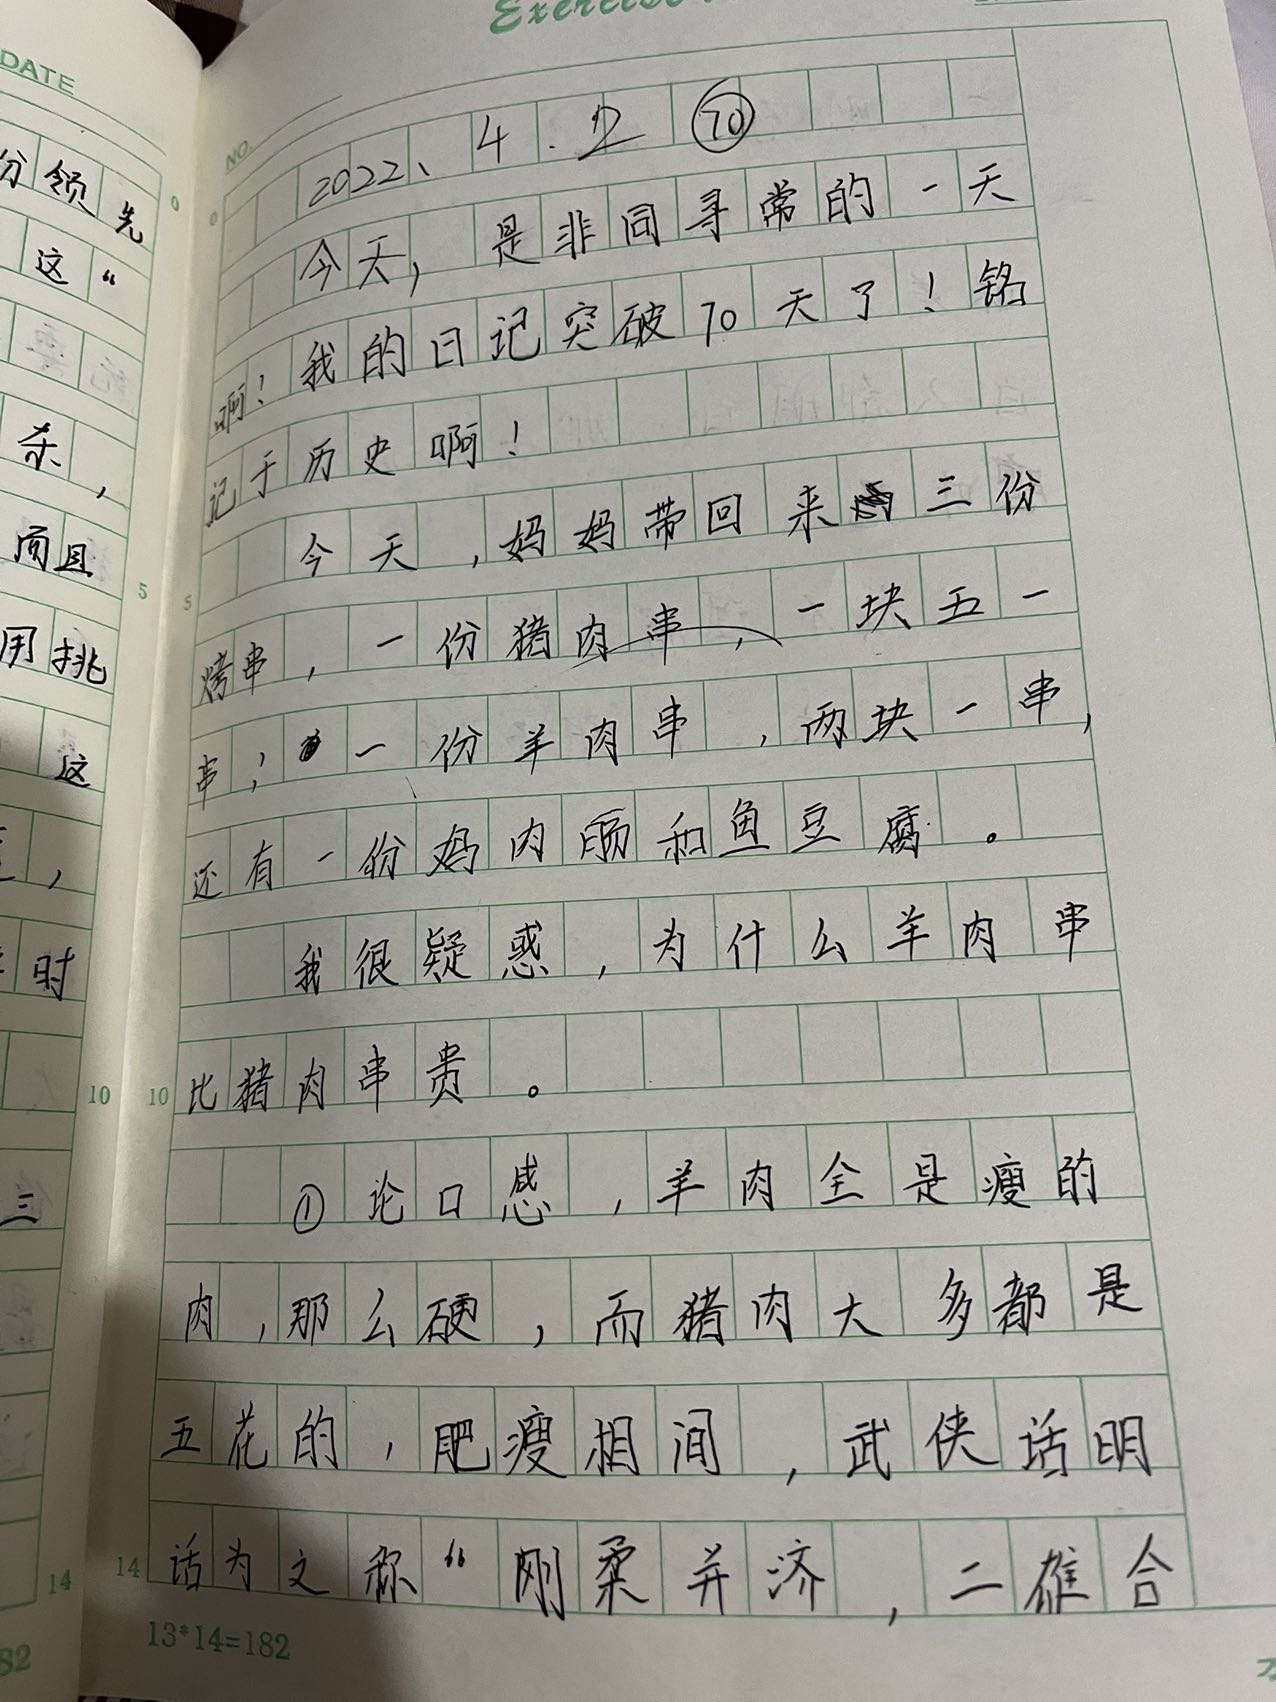 DATE
份领先
这“
杀，
而且
用挑
这
时
三
0
5
10
14
82
Exercise
NO.
2022、4.2 ⑦⓪
今天，是非同寻常的一天
啊！我的日记突破70天了！铭
记于历史啊！
今天，妈妈带回来三份
烤串，一份猪肉串，一块五一
串；一份羊肉串，两块一串，
还有一份妈肉肠和鱼豆腐。
我很疑惑，为什么羊肉串
比猪肉串贵。
①论口感，羊肉全是瘦的
肉，那么硬，而猪肉大多都是
五花的，肥瘦相间，武侠话明
话为文称“刚柔并济，二雄合
0
5
10
14
13*14=182